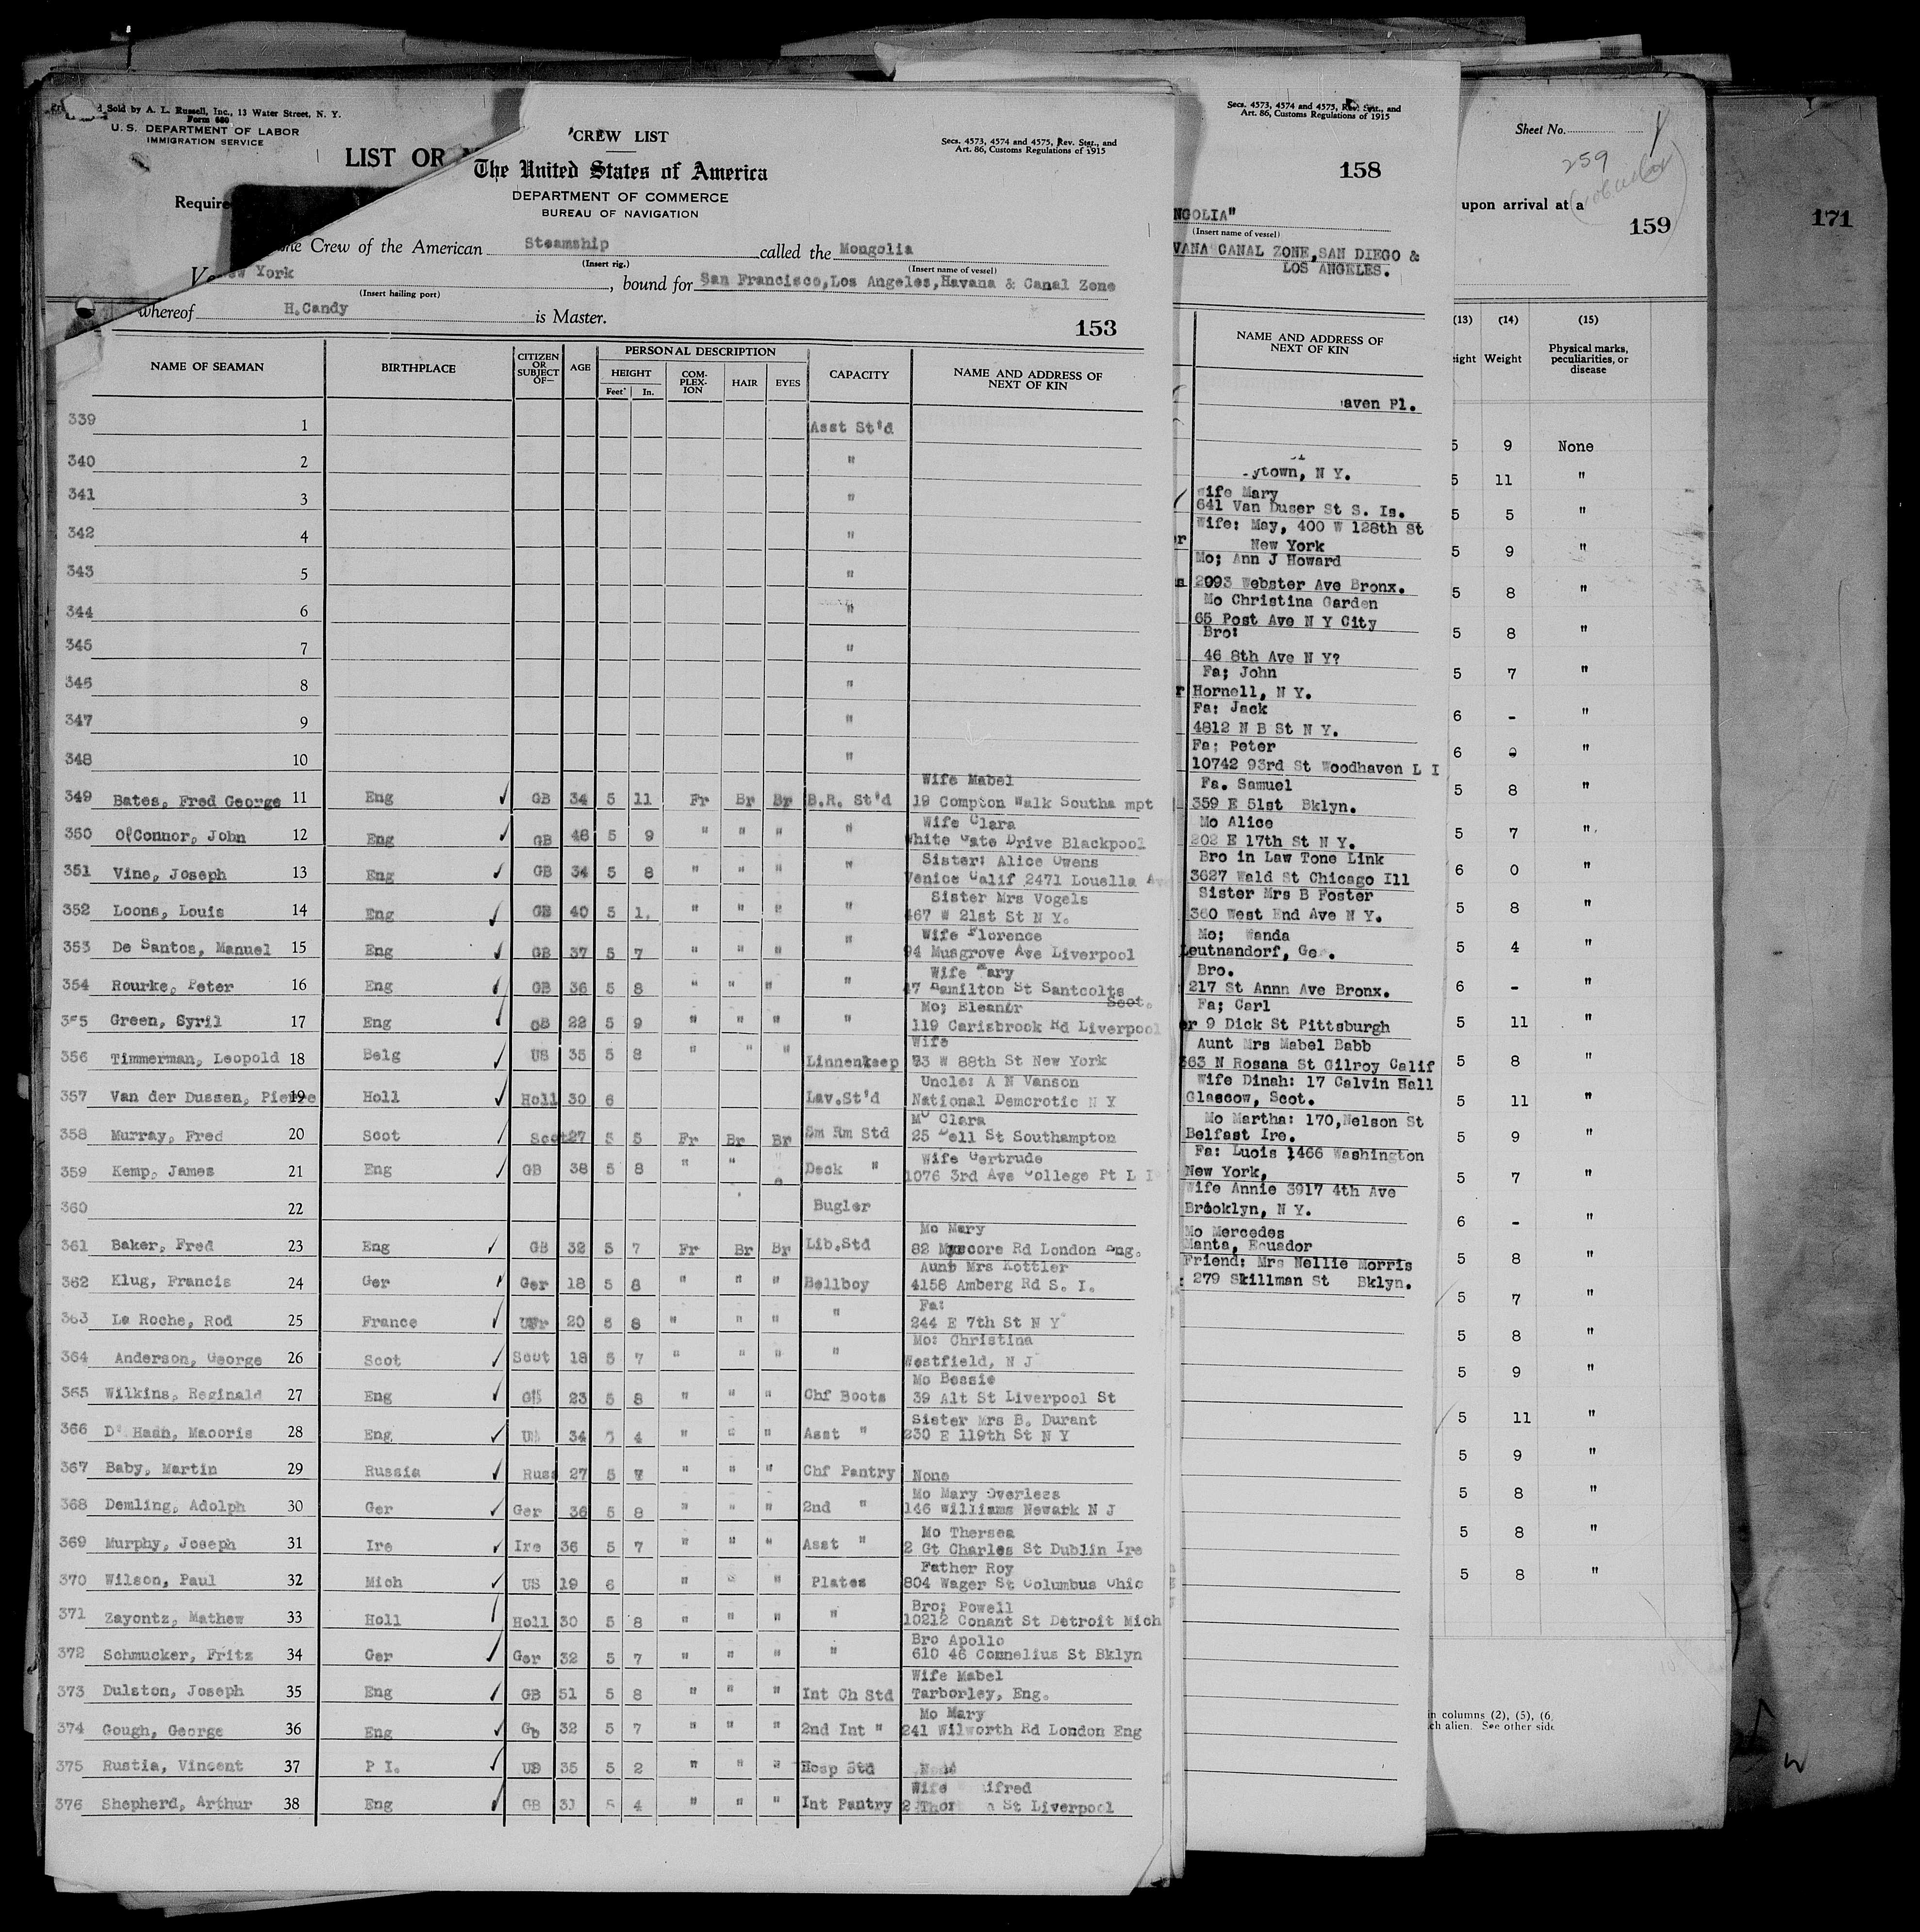 Sold by A. L. Russell, Inc., 13 Water Street, N. Y.
Form 680
U. S. DEPARTMENT OF LABOR
IMMIGRATION SERVICE
LIST OR
Require
CREW LIST
Secs. 4573, 4574 and 4575, Rev. Stat., and
Art. 86, Customs Regulations of 1915
The United States of America
DEPARTMENT OF COMMERCE
BUREAU OF NAVIGATION
the Crew of the American Steamship called the Mongolia
(Insert rig.) (Insert name of vessel)
New York, bound for San Francisco,Los Angeles,Havana & Canal Zone
(Insert hailing port)
whereof H.Candy is Master.
153
NAME OF SEAMAN BIRTHPLACE CITIZEN OR SUBJECT OF— AGE PERSONAL DESCRIPTION CAPACITY NAME AND ADDRESS OF NEXT OF KIN
HEIGHT COM-PLEX-ION HAIR EYES
Feet In.
339 1 Asst St'd
340 2 "
341 3 "
342 4 "
343 5 "
344 6 "
345 7 "
346 8 "
347 9 "
348 10 "
Wife Mabel
349 Bates, Fred George 11 Eng GB 34 5 11 Fr Br Br B.R. St'd 19 Compton Walk Southa mpt
Wife Clara
350 O'Connor, John 12 Eng GB 48 5 9 " " " " White Gate Drive Blackpool
Sister: Alice Owens
351 Vine, Joseph 13 Eng GB 34 5 8 " " " " Venice Calif 2471 Louella Av
Sister Mrs Vogels
352 Loons, Louis 14 Eng GB 40 5 1. " " " " 467 W 21st St N Y.
Wife Florence
353 De Santos, Manuel 15 Eng GB 37 5 7 " " " " 94 Musgrove Ave Liverpool
Wife Mary
354 Rourke, Peter 16 Eng GB 36 5 8 " " " " 47 Hamilton St Santcolts
Scot.
Mo; Eleanor
355 Green, Syril 17 Eng GB 22 5 9 " " " " 119 Carisbrook Rd Liverpool
Wife
356 Timmerman, Leopold 18 Belg US 35 5 8 " " " Linnenkeep 73 W 88th St New York
Uncle: A N Vanson
357 Van der Dussen, Pierre 19 Holl Holl 30 6 Lav.St'd National Demcrotic N Y
Mo Clara
358 Murray, Fred 20 Scot Scot 27 5 5 Fr Br Br Sm Rm Std 25 Dell St Southampton
Wife Gertrude
359 Kemp, James 21 Eng GB 38 5 8 " " " Deck " 1076 3rd Ave College Pt L I
360 22 Bugler
Mo Mary
361 Baker, Fred 23 Eng GB 32 5 7 Fr Br Br Lib.Std 82 Rd London Eng.
Aunt Mrs Kottler
362 Klug, Francis 24 Ger Ger 18 5 8 " " " Bellboy 4158 Amberg Rd S. I.
Fa:
363 La Roche, Rod 25 France Fr 20 5 8 " " " " 244 E 7th St N Y
Mo: Christina
364 Anderson, George 26 Scot Scot 18 5 7 " " " " Westfield, N J
Mo Bessie
365 Wilkins, Reginald 27 Eng GB 23 5 8 " " " Chf Boots 39 Alt St Liverpool St
Sister Mrs B. Durant
366 D' Haan, Macoris 28 Eng 34 5 4 " " " Asst " 230 E 119th St N Y
367 Baby, Martin 29 Russia Russ 27 5 7 " " " Chf Pantry None
Mo Mary Overless
368 Demling, Adolph 30 Ger Ger 36 5 8 " " " 2nd " 146 Williams Newark N J
Mo Thersea
369 Murphy, Joseph 31 Ire Ire 36 5 7 " " " Asst " 2 Gt Charles St Dublin Ire
Father Roy
370 Wilson, Paul 32 Mich US 19 6 " " " Plates 804 Wager St Columbus Ohio
Bro; Powell
371 Zayontz, Mathew 33 Holl Holl 30 5 8 " " " " 10212 Conant St Detroit Mich
Bro Apollo
372 Schmucker, Fritz 34 Ger Ger 32 5 7 " " " " 610 46 Connelius St Bklyn
Wife Mabel
373 Dulston, Joseph 35 Eng GB 51 5 8 " " " Int Ch Std Tarborley, Eng.
Mo Mary
374 Gough, George 36 Eng Gb 32 5 7 " " " 2nd Int " 241 Wilworth Rd London Eng
375 Rustia, Vincent 37 P I. US 35 5 2 " " " Hosp Std
Wife ifred
376 Shepherd, Arthur 38 Eng GB 31 5 4 " " " Int Pantry 2 Thor a St Liverpool
Secs. 4573, 4574 and 4575, Rev. Stat., and
Art. 86, Customs Regulations of 1915
158
NGOLIA"
(Insert name of vessel)
VANA CANAL ZONE,SAN DIEGO &
LOS ANGELES.
NAME AND ADDRESS OF
NEXT OF KIN
aven Pl.
ytown, N Y.
Wife Mary
641 Van Duser St S. Is.
Wife: May, 400 W 128th St
New York
Mo; Ann J Howard
2093 Webster Ave Bronx.
Mo Christina Garden
65 Post Ave N Y City
Bro:
46 8th Ave N Y?
Fa; John
Hornell, N Y.
Fa: Jack
4812 N B St N Y.
Fa; Peter
10742 93rd St Woodhaven L I
Fa. Samuel
359 E 51st Bklyn.
Mo Alice
202 E 17th St N Y.
Bro in Law Tone Link
3627 Wald St Chicago Ill
Sister Mrs B Foster
360 West End Ave N Y.
Mo; Wanda
Leutnandorf, Ge .
Bro.
217 St Annn Ave Bronx.
Fa; Carl
er 9 Dick St Pittsburgh
Aunt Mrs Mabel Babb
363 N Rosana St Gilroy Calif
Wife Dinah: 17 Calvin Hall
Glascow, Scot.
Mo Martha: 170,Nelson St
Belfast Ire.
Fa: Luois 1466 Washington
New York,
Wife Annie 3917 4th Ave
Brooklyn, N Y.
Mo Mercedes
Manta, Ecuador
Friend: Mrs Nellie Morris
: 279 Skillman St Bklyn.
Sheet No.
259
upon arrival at a
159
(13) (14) (15)
eight Weight Physical marks, peculiarities, or disease
5 9 None
5 11 "
5 5 "
5 9 "
5 8 "
5 8 "
5 7 "
6 - "
6 "
5 8 "
5 7 "
6 0 "
5 8 "
5 4 "
6 - "
5 11 "
5 8 "
5 11 "
5 9 "
5 7 "
6 - "
5 8 "
5 7 "
5 8 "
5 9 "
5 11 "
5 9 "
5 8 "
5 8 "
5 8 "
in columns (2), (5), (6
ch alien. See other side
171